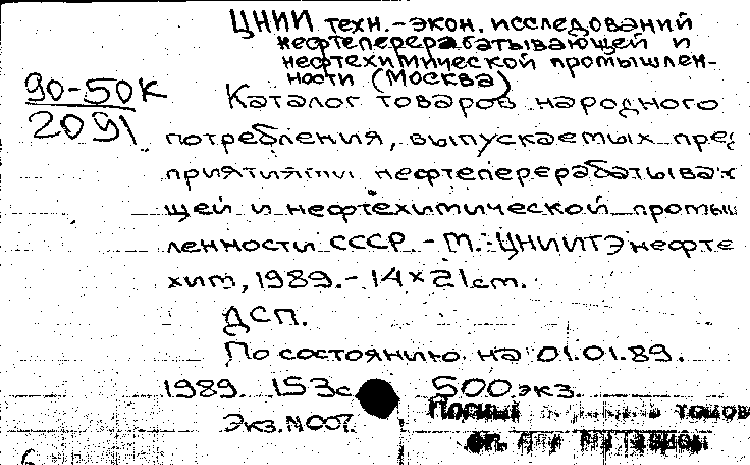 ЦНИИ техн.-экон. исследований
нефтеперерабатывающей и
нефтехимической промышлен-
ности (Москва)
90-50К
2091
Каталог товаров народного
потребления, выпускаемых пред
приятиями нефтеперерабатываю
щей и нефтехимической промыш
ленности СССР. - М.: ЦНИИТЭнефте
хим, 1989. - 14×21см.
ДСП.
По состоянию на 01.01.89.
1989. 153с. 500 экз.
Экз. N007.